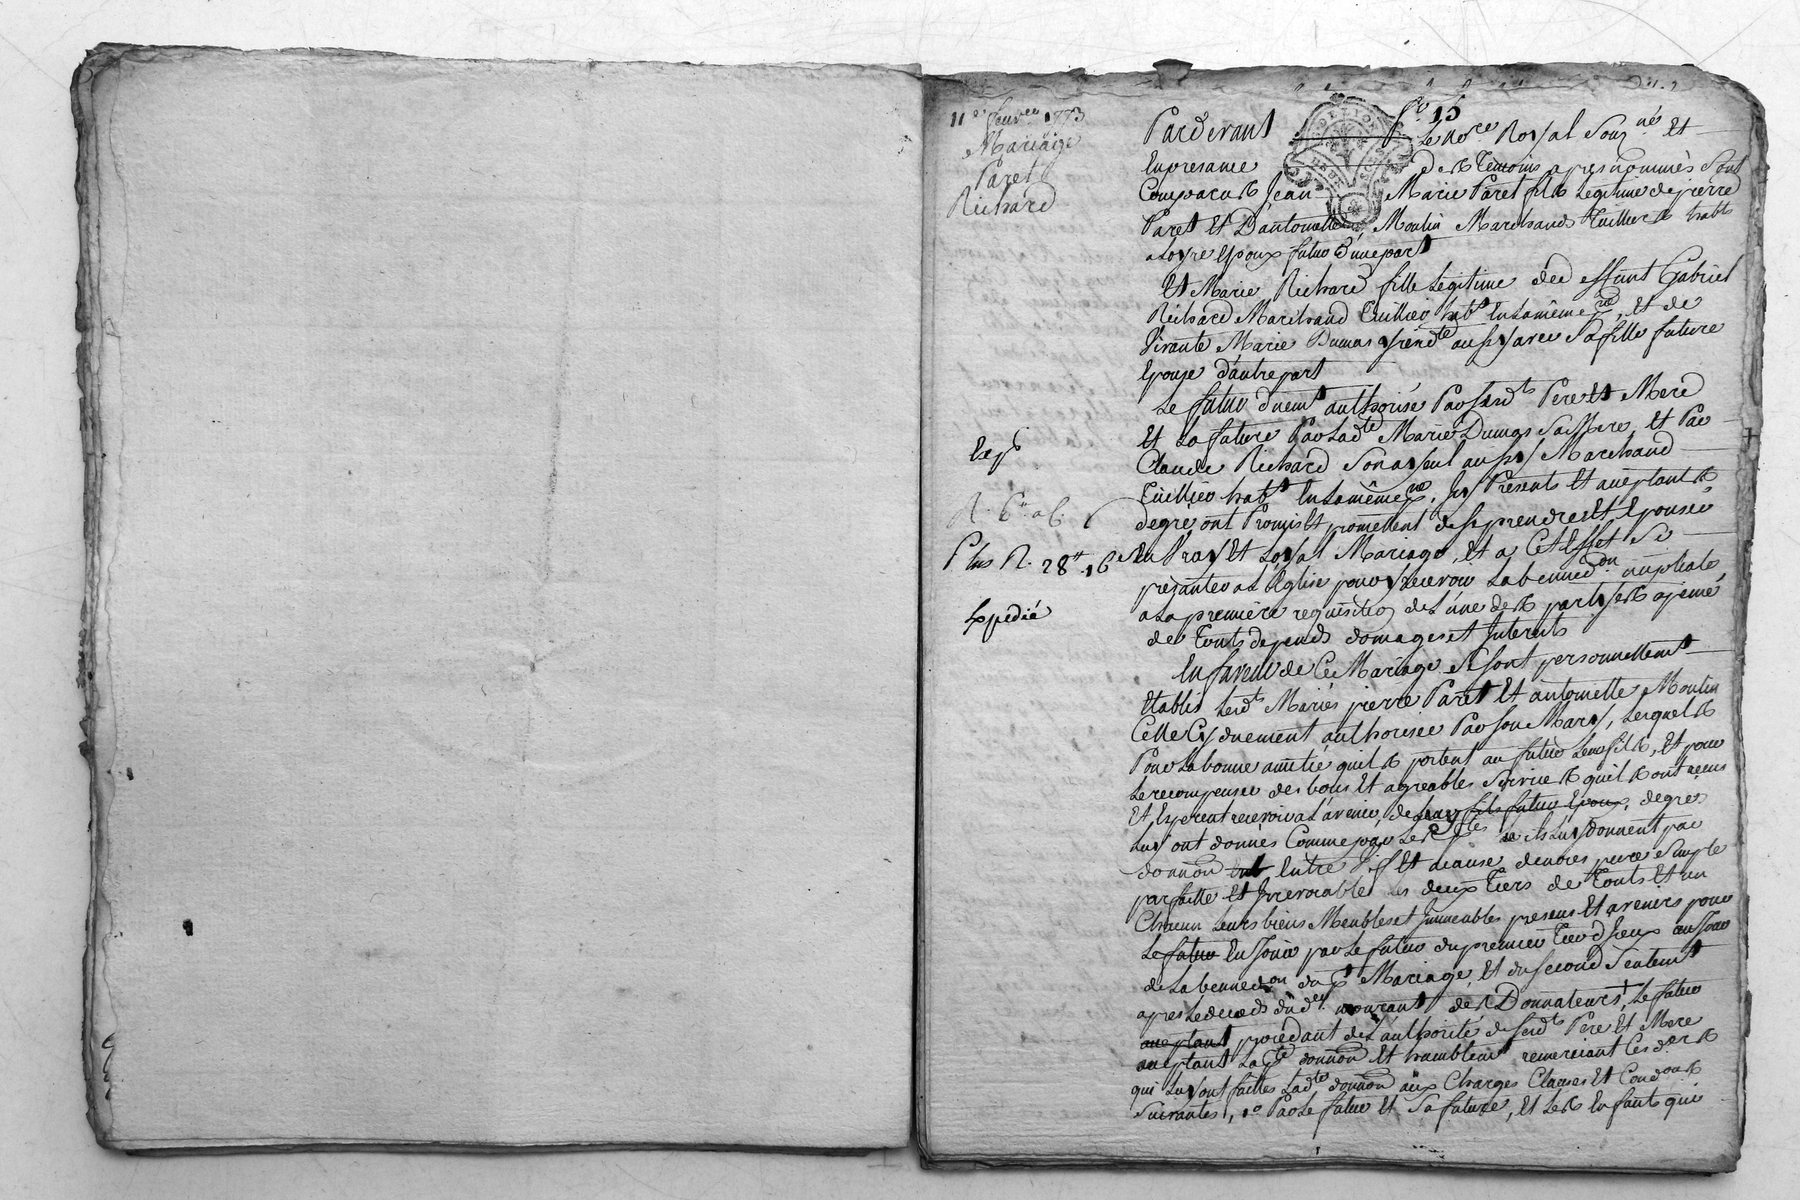 11e fevrer 1773
Mariaige
Paret
Richard
Expé
R. 6tt a 6.
Plus R. 28tt .16s
Expedié
fo 15
Pardevant Le No.re Royal Souz.né Et
En presance des Témoins apres nommés Sont
Comparus Jean Marie Paret fils Legitime de pierre
Paret Et Dantoinette Moulin Marchands Tuilliers habts
a Loyre Epoux futur D'une part
Et Marie Richard fille Legitime de deffunt Gabriel
Richard Marchand Tuillier habt En la même pse, Et de
Vivante Marie Dumas presente aussy avec Sa fille future
Epouse d'autre part
Le futur duemt authorisé Par Sesdts Pere Et Mere
Et La future Par Ladte Marie Dumas Sa Mere, Et Par
Claude Richard Son ayeul aussy Marchand
Tuillier habt En la même pse, Icy Presents Et acceptants
de gré ont Promis Et promettent de Se prendre Et Epouser
En Vray Et Loyal Mariage, Et a Cet Effet Se
presanter a L'Eglise pour y recevoir La benned.on nuptiale,
a La premiere requisition de L'une des parties a peine
de Touts depends domages et Interests
En faveur de Ce Mariage Se Sont personnellement
Etablis Lesdts Mariés pierre Paret Et antoinette Moulin
Celle Cy duement authorisée Par Son Mary, Lesquels
Pour La bonne amitié quils portent au futur Leur fils, Et pour
Le recompenser des bons Et agreables Services quils ont reçus
Et Esperent recevoir a L'avenir, de Leur fils futur Epoux, de gré
Luy ont donnés Comme par Les ptes ils Luy donnent par
donnaon Entre Vifs Et a cause de noces pure Simple
parfaitte et Irrevocable les deux Tiers de Touts Et un
Chacun Leurs biens Meubles et Immeubles presens Et avenirs pour
Le futur En Jouir par Le futur du premier Tier d'Iceux au Jour
de La benned.on du pt Mariage, Et du Second Seulement
apres Le deceds du der mourant des Donnateurs, Le futur
acceptant procedant de L'authorité de Sesdts Pere Et Mere
acceptant La pte donnaon Et humblemt remerciant Ces ders
qui Luy ont faittes Ladte donnaon aux Charges Clauses Et Condons
Suivantes, 1o Par Le futur Et Sa future, Et Les Enfants qui